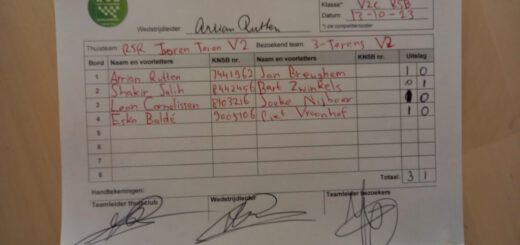 Klasse* V2C RSB
Wedstrijdleider Arrian Rutten Datum: 13-10-23
*) zie competitieleider
Thuisteam: RSR Ivoren Toren V2 Bezoekend team: 3-Torens V2
Bord Naam en voorletters KNSB nr. Naam en voorletters KNSB nr. Uitslag
1 Arrian Rutten 7441962 Jan Breughem 1 0
2 Shakir Salih 8442456 Bart Zwinkels 0 1
3 Leon Cornelissen 8403216 Sooke Nijboer 1 0
4 Eska Baldé 9009106 Piet Vroonhof 1 0
5
6
7
8
Totaal: 3 1
Handtekeningen:
Teamleider thuisclub Wedstrijdleider Teamleider bezoekers